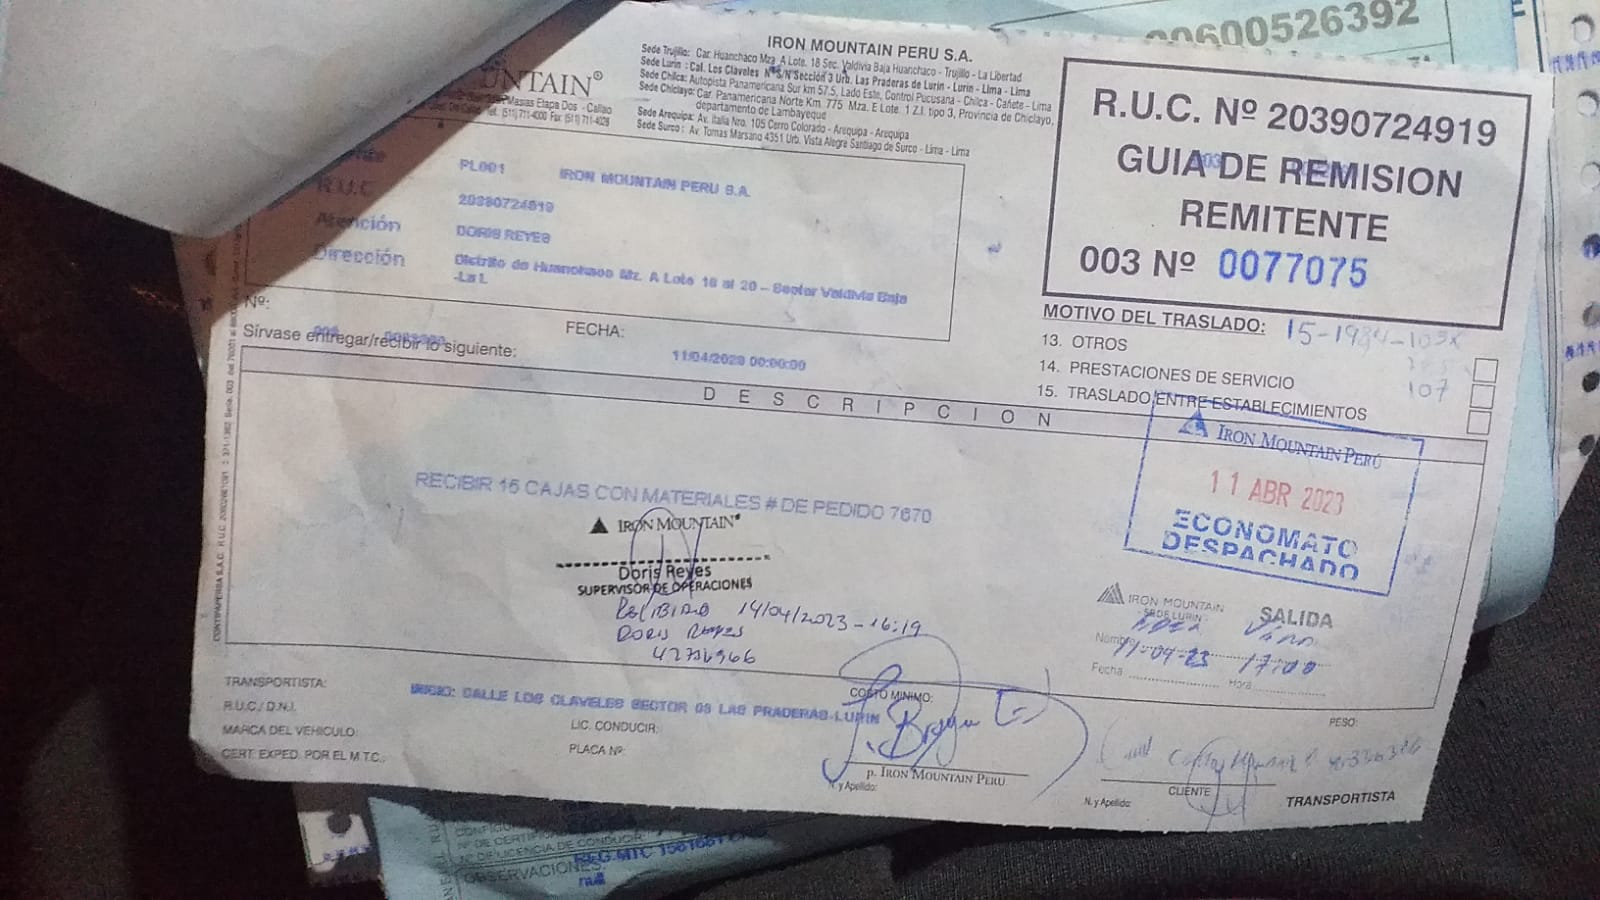 00600526392
IRON MOUNTAIN PERU S.A.
Sede Trujillo: Car. Huanchaco Mza. A Lote. 18 Sec. Valdivia Baja Huanchaco - Trujillo - La Libertad
Sede Lurin : Cal. Los Claveles Nº S/N Sección 3 Urb. Las Praderas de Lurin - Lurin - Lima - Lima
Sede Chilca: Autopista Panamericana Sur km 57.5, Lado Este, Control Pucusana - Chilca - Cañete - Lima
Sede Chiclayo: Car. Panamericana Norte Km. 775 Mza. E Lote. 1 Z.I. tipo 3, Provincia de Chiclayo,
departamento de Lambayeque
Sede Arequipa: Av. Italia Nro. 105 Cerro Colorado - Arequipa - Arequipa
Sede Surco : Av. Tomas Marsano 4351 Urb. Vista Alegre Santiago de Surco - Lima - Lima
UNTAIN®
Masias Etapa Dos - Callao
Tel. (511) 711-4000 Fax (511) 711-4029
R.U.C. Nº 20390724919
GUIA DE REMISION
REMITENTE
003 Nº 0077075
PL001 IRON MOUNTAIN PERU S.A.
R.U.C 20390724919
Atención DORIS REYES
Dirección Distrito de Huanchaco Mz. A Lote 18 al 20 – Sector Valdivia Baja
-La L
MOTIVO DEL TRASLADO:
13. OTROS
14. PRESTACIONES DE SERVICIO
107
15. TRASLADO ENTRE ESTABLECIMIENTOS
Nº:
Sírvase entregar/recibir lo siguiente:
FECHA: 11/04/2023 00:00:00
DESCRIPCION
IRON MOUNTAIN PERÚ
11 ABR 2023
ECONOMATO
DESPACHADO
RECIBIR 15 CAJAS CON MATERIALES # DE PEDIDO 7670
IRON MOUNTAIN®
Doris Reyes
SUPERVISOR DE OPERACIONES
Recibido 14/04/2023 - 16:19
Doris Reyes
IRON MOUNTAIN SALIDA
- SEDE LURIN -
Nombre
Fecha 11-04-23 Hora 17:00
TRANSPORTISTA:
INICIO: CALLE LOS CLAVELES SECTOR 03 LAS PRADERAS-LURIN
COSTO MINIMO:
PESO:
R.U.C./ D.N.I.
MARCA DEL VEHICULO:
LIC. CONDUCIR:
CERT. EXPED. POR EL M.T.C.:
PLACA Nº:
p. IRON MOUNTAIN PERU
N. y Apellido:
CLIENTE
N. y Apellido:
TRANSPORTISTA
Nº DE LICENCIA DE CONDUCIR:
OBSERVACIONES:
null